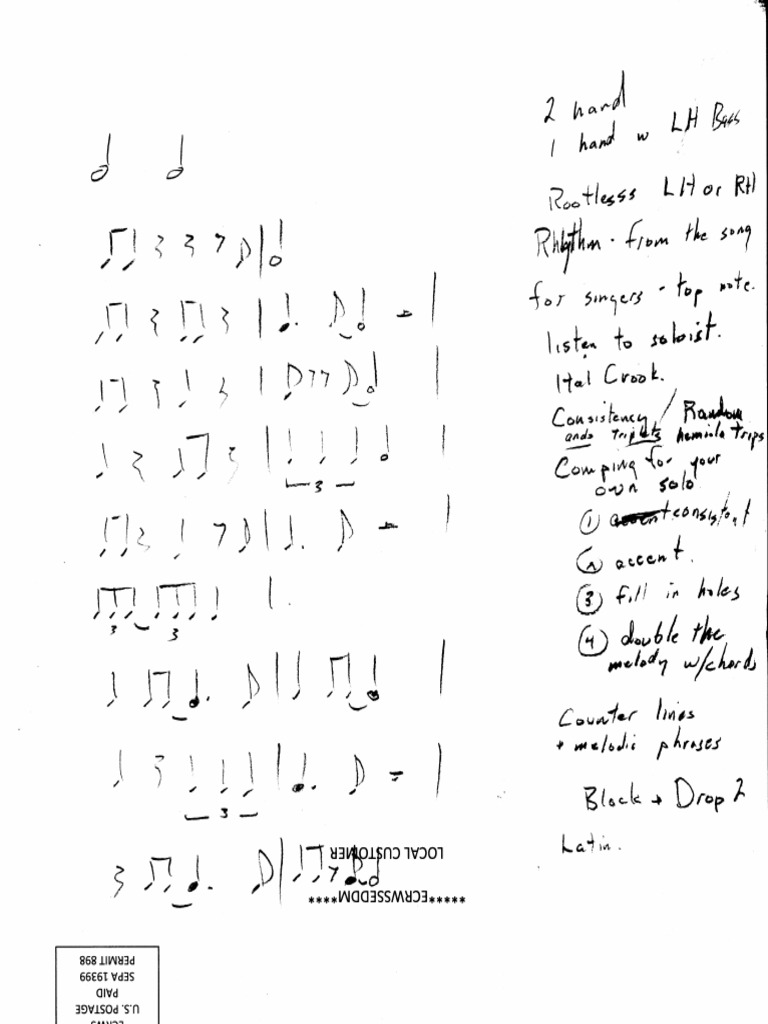 2 hand
1 hand w LH Bass
Rootlesss LH or RH
Rhythm - from the song
for singers - top note.
listen to soloist.
Hal Crook.
Consistency / Random
ands Triplets hemiola trips
Comping for your
own solo
① consistent
② accent.
③ fill in holes
④ double the
melody w/chords
Counter lines
+ melodic phrases
Block + Drop 2
Latin.
3
3 3
3
LOCAL CUSTOMER
*****ECRWSSEDDM****
ECRWS
U.S. POSTAGE
PAID
SEPA 19399
PERMIT 898